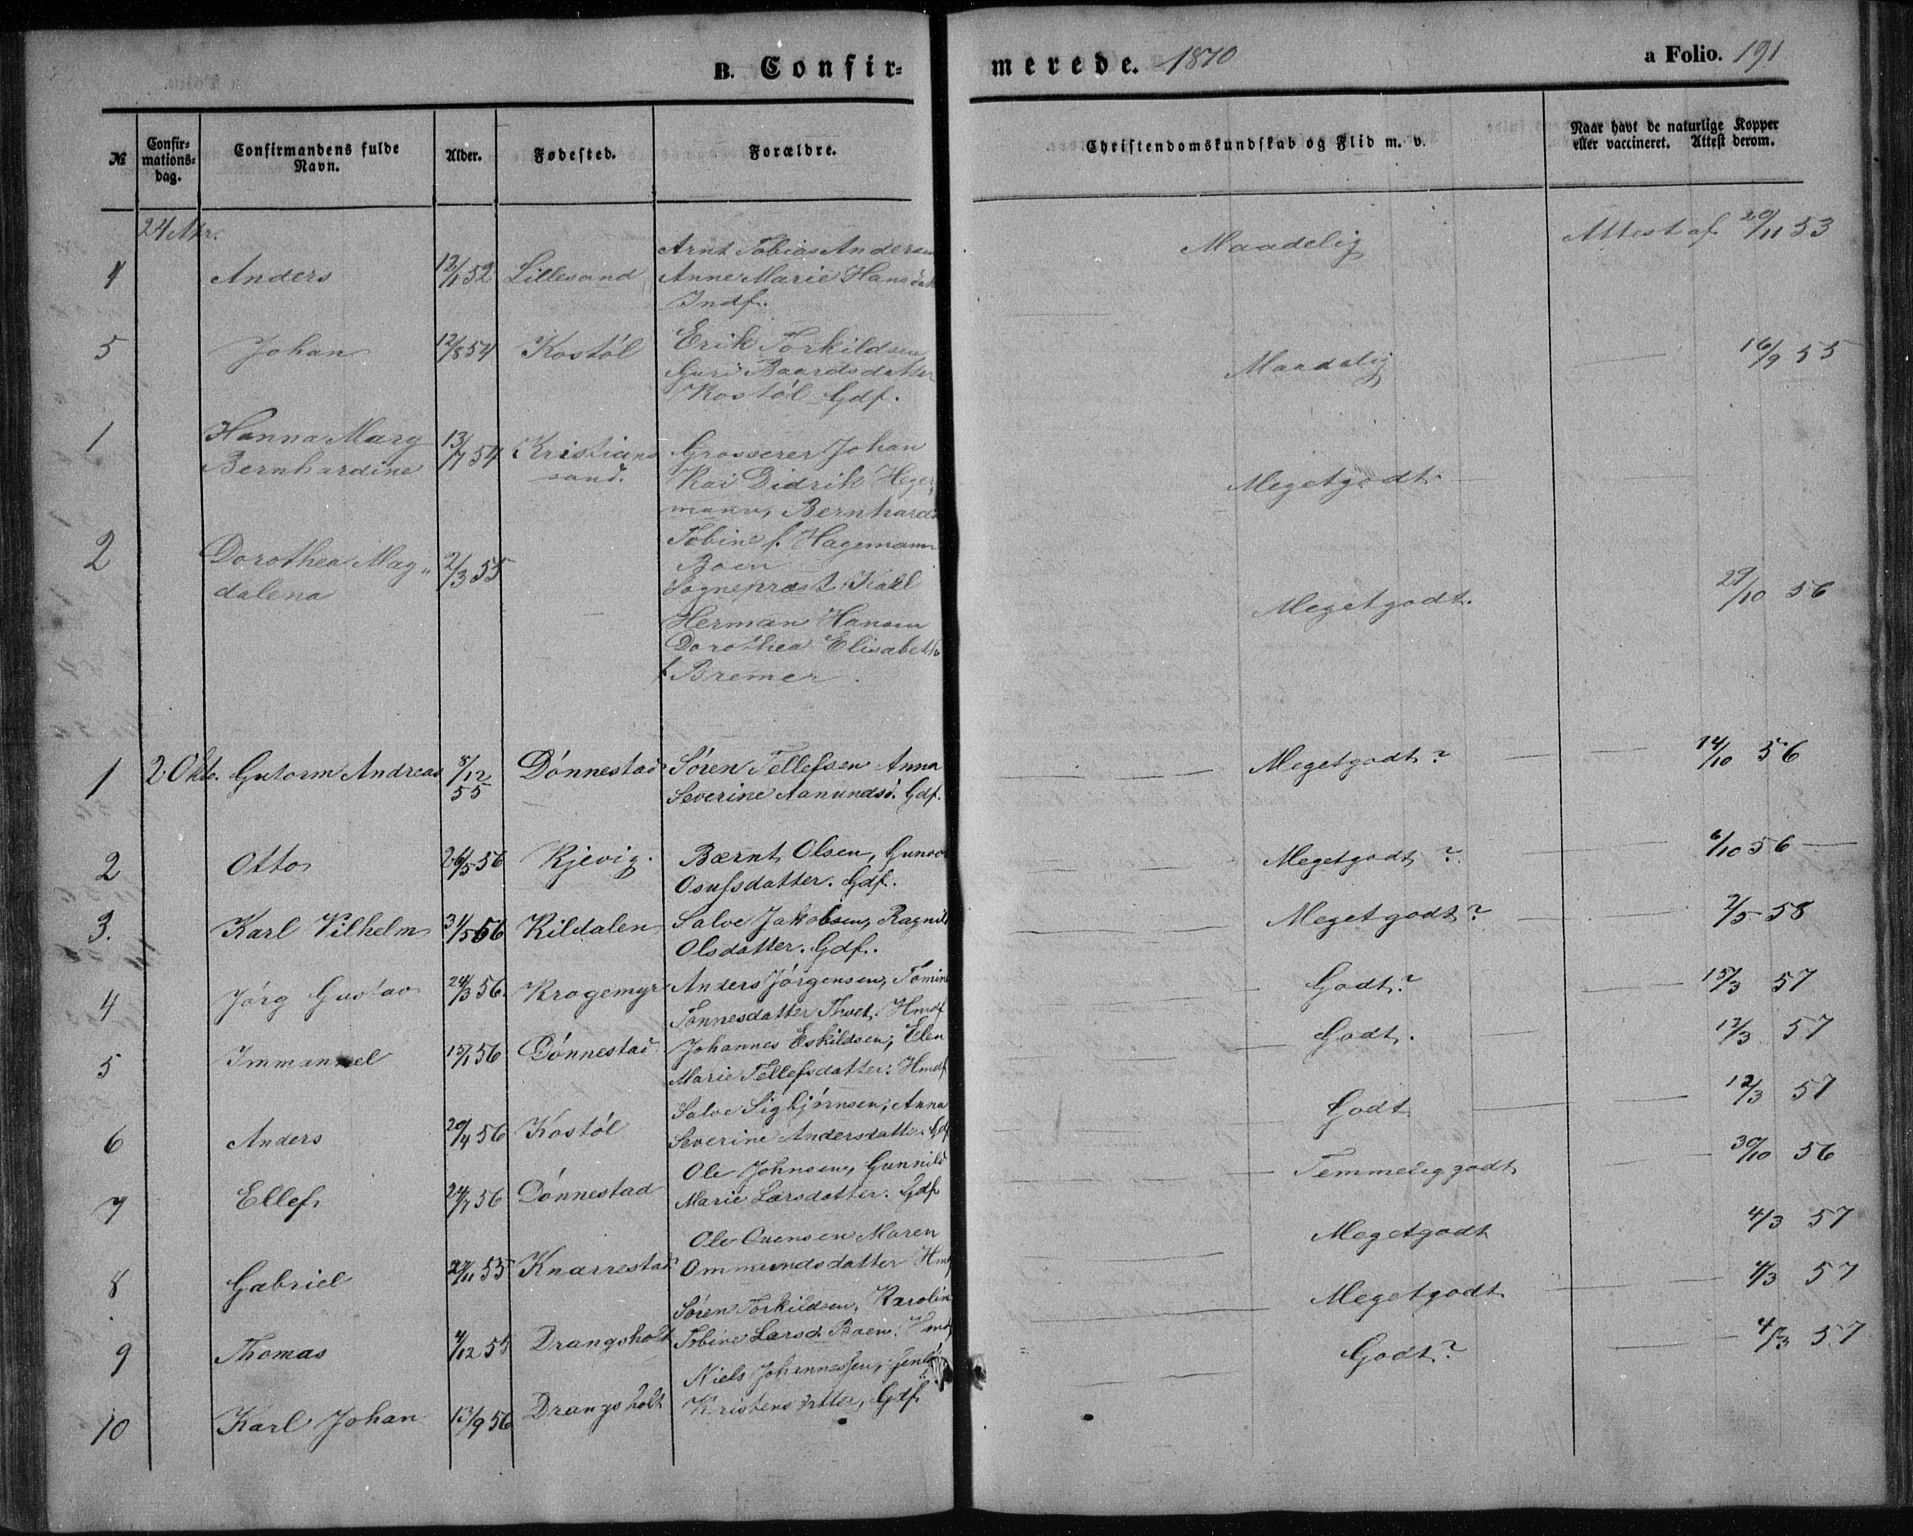 B. Confir= merede. 1870 a Folio. 191
№ Confir=mations=dag. Confirmandens fulde Navn. Alder. Fødested. Forældre. Christendomskundskab og Flid m. v. Naar havt de naturlige Kopper eller vaccineret. Attest derom.
Arnt Tobias Andersen Maadelig Attest af 29/11 53
4 Anders 52 Lillesand Anne Marie
Indf.
5 Johan 12/8 54 Kostøl Erik Torkildsen Maadelig 16/9 55
Guri Baardsdatter
Kostøl Gdf.
1 Hanna Marg 13/7 54 Kristians Grosserer Johan
Bernhardine sand. Kai Didrik Heger Megetgodt.
mann, Bernhard
Tobine f. Hagemann
2 Dorothea Mag„ 2/3 55 Boen
dalena Sogneprest Karl Megetgodt. 29/10 56
Herman Hansen
Dorothea Elisabeth
f Bremer.
1 2 Okto. Gutorm Andreas 8/12 55 Dønnestad Søren Tellefsen Anna Megetgodt? 14/10 56
Severine Aanundsd. Gdf.
2 Otto 26/5 56 Kjevig. Bærnt Olsen, Gunvor Megetgodt? 6/10 56
Osufsdatter. Gdf.
3. Karl Vilhelm 31/5 56 Kildalen Salve Jakobsen, Ragnil Megetgodt? 2/5 58
Olsdatter. Gdf.
4 Jørg Gustav 24/3 56. Krogemyr Anders Jørgensen, Tomine Godt? 15/3 57
Tønnesdatter Hmdf
5 Immanuel 15/1 56 Dønnestad Johannes Eskildsen, Elen Godt. 12/3 57
Marie Tellefsdatter. Hmdf
6 Anders 20/4 56 Kostøl Salve Sigbjørnsen, Anna Godt 12/3 57
Severine Andersdatter Gdf
7 Ellef 24/7 56 Dønnestad Ole Johnsen, Gunnild Temmeliggodt 30/10 56
Marie Larsdatter. Gdf
8 Gabriel 27/11 55 Knarrestad Ole Ovensen Maren Megetgodt 4/3 57
Ommundsdatter Hmdf
9 Thomas 4/12 55 Drangsholt Søren Torkildsen, Karolin Megetgodt 4/3 57
Tobine Larsd. Boen. Hmdf
10 Karl Johan 13/9 56 Drangsholt Niels Johannessen, Godt? 4/3 57
Kristensdatter, Gdf